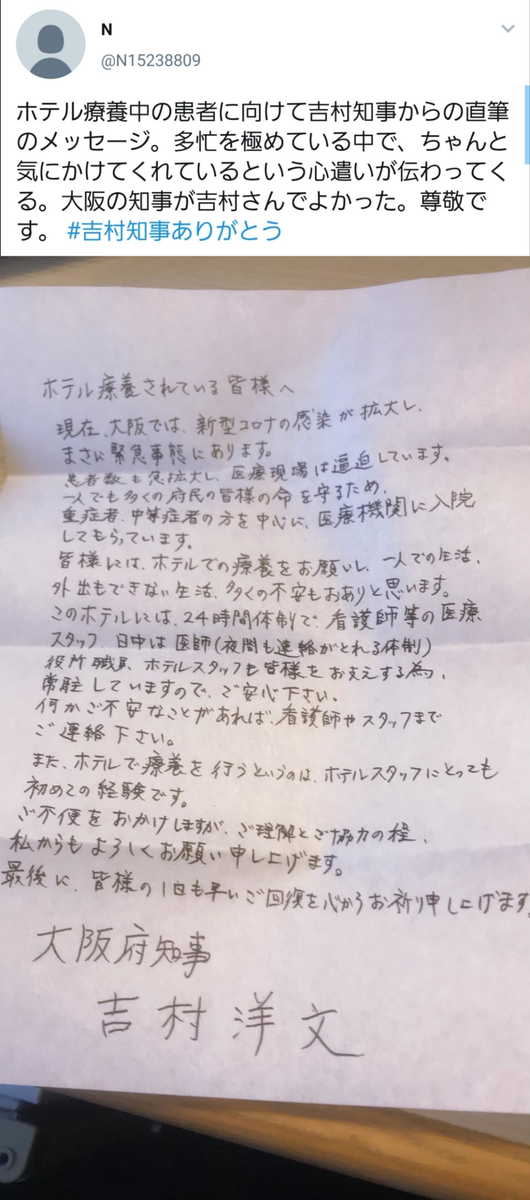 N
@N15238809
ホテル療養中の患者に向けて吉村知事からの直筆
のメッセージ。多忙を極めている中で、ちゃんと
気にかけてくれているという心遣いが伝わってく
る。大阪の知事が吉村さんでよかった。尊敬で
す。 #吉村知事ありがとう
ホテル療養されている皆様へ
現在、大阪では、新型コロナの感染が拡大し、
まさに緊急事態にあります。
患者数も急拡大し、医療現場は逼迫しています。
一人でも多くの府民の皆様の命を守るため、
重症者、中等症者の方を中心に、医療機関に入院
してもらっています。
皆様には、ホテルでの療養をお願いし、一人での生活、
外出もできない生活、多くの不安もおありと思います。
このホテルには、24時間体制で、看護師等の医療
スタッフ、日中は医師(夜間も連絡がとれる体制)
役所職員、ホテルスタッフも皆様をお支えする為、
常駐していますので、ご安心下さい。
何かご不安なことがあれば、看護師やスタッフまで
ご連絡下さい。
また、ホテルで療養を行うというのは、ホテルスタッフにとっても
初めての経験です。
ご不便をおかけしますが、ご理解とご協力の程、
私からもよろしくお願い申し上げます。
最後に、皆様の1日も早いご回復を心からお祈り申し上げます
大阪府知事
吉村洋文